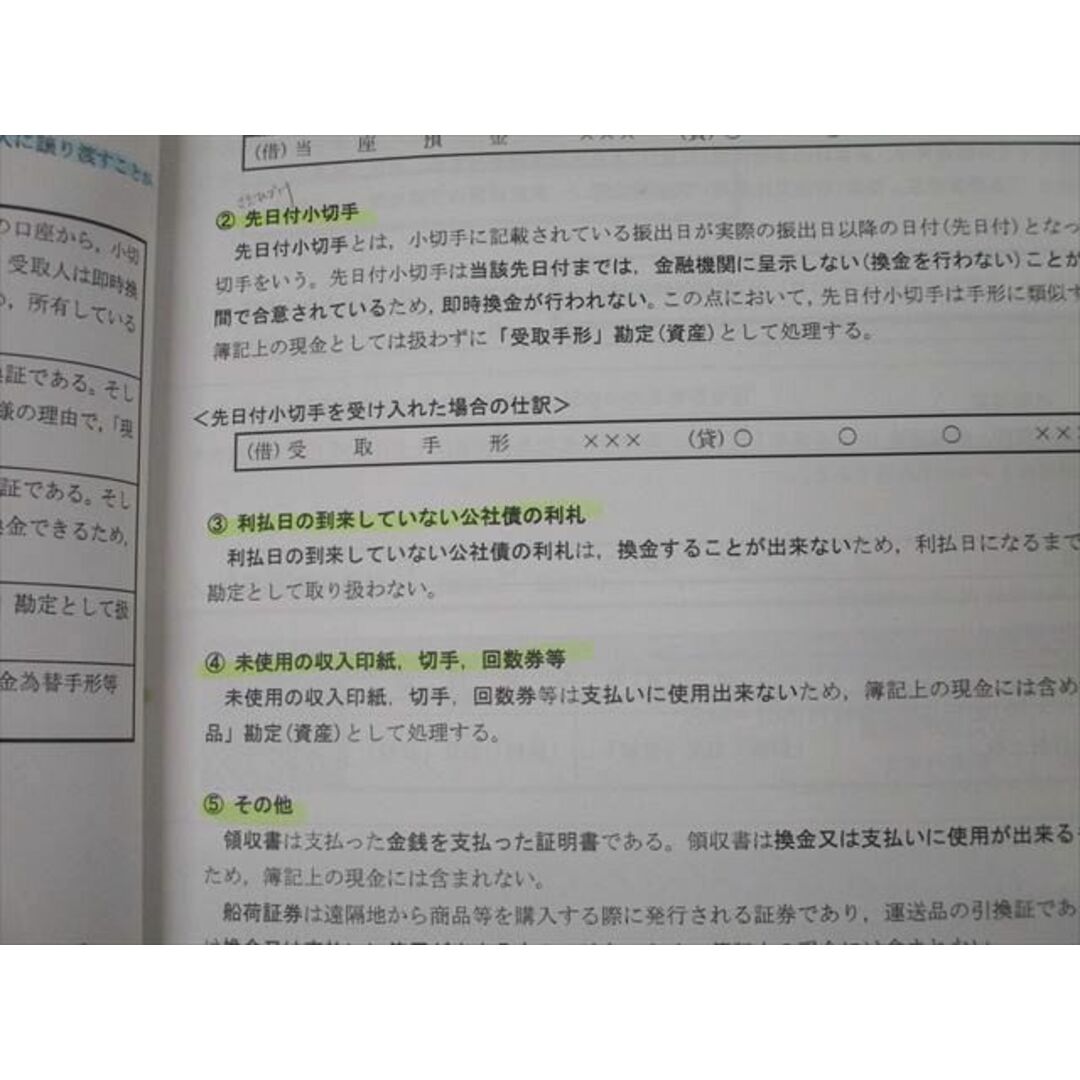 人に譲り渡すことが
の口座から，小切
受取人は即時換
め，所有している
換証である。そし
様の理由で，「現
証である。そし
換金できるため，
勘定として扱
金為替手形等
(借) 当 座 預 金 ××× (貸) 〇
さきひづけ
② 先日付小切手
先日付小切手とは，小切手に記載されている振出日が実際の振出日以降の日付(先日付)となっ
切手をいう。先日付小切手は当該先日付までは，金融機関に呈示しない(換金を行わない)ことが
間で合意されているため，即時換金が行われない。この点において，先日付小切手は手形に類似す
簿記上の現金としては扱わずに「受取手形」勘定(資産)として処理する。
＜先日付小切手を受け入れた場合の仕訳＞
(借) 受 取 手 形 ××× (貸) 〇 〇 〇 ××
③ 利払日の到来していない公社債の利札
利払日の到来していない公社債の利札は，換金することが出来ないため，利払日になるまで
勘定として取り扱わない。
④ 未使用の収入印紙，切手，回数券等
未使用の収入印紙，切手，回数券等は支払いに使用出来ないため，簿記上の現金には含め
品」勘定(資産)として処理する。
⑤ その他
領収書は支払った金銭を支払った証明書である。領収書は換金又は支払いに使用が出来る
ため，簿記上の現金には含まれない。
船荷証券は遠隔地から商品等を購入する際に発行される証券であり，運送品の引換証であ